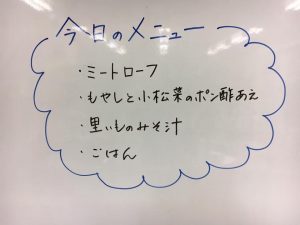 今日のメニュー
・ミートローフ
・もやしと小松菜のポン酢あえ
・里いものみそ汁
・ごはん